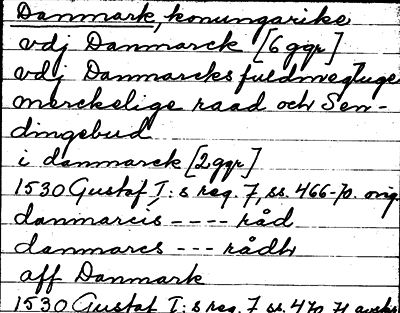 Danmark, konungarike
vdj Danmarck [6 ggr]
vdj Danmarcks fuldmegtuge
merckelige raad och Sen-
dingebud
i danmarck [2 ggr]
1530 Gustaf I:s reg. 7, ss. 466-70. orig.
danmarcis ---- råd
danmarcs --- rådh
aff Danmark
1530 Gustaf I:s reg. 7 ss. 470, 71